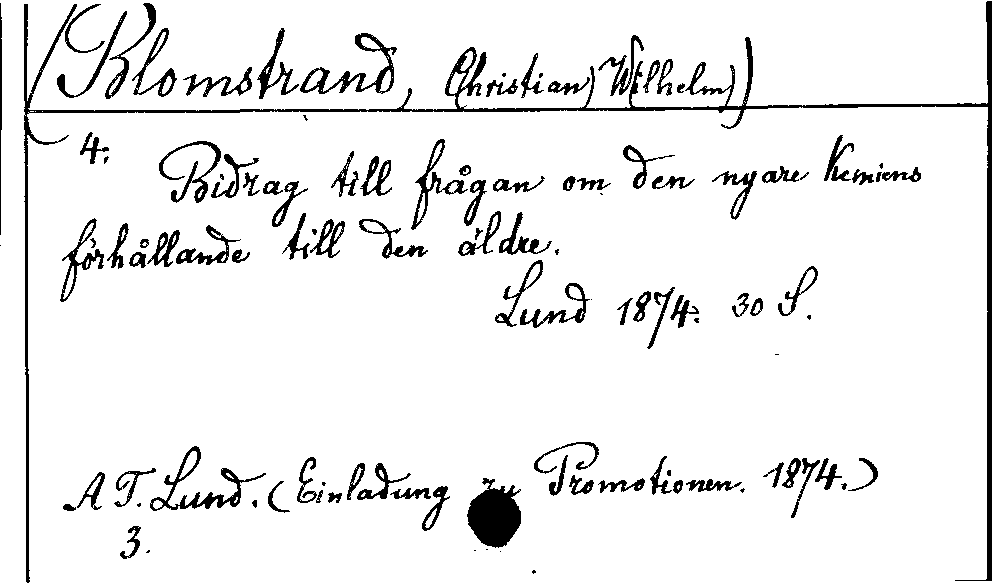 (Blomstrand, Christian) Wilhelm))
4: Bidrag till frågan om den nyare Kemiens
förhållande till den äldre.
Lund 1874: 30 S.
A T. Lund. (Einladung zu Promotionen. 1874.)
3.